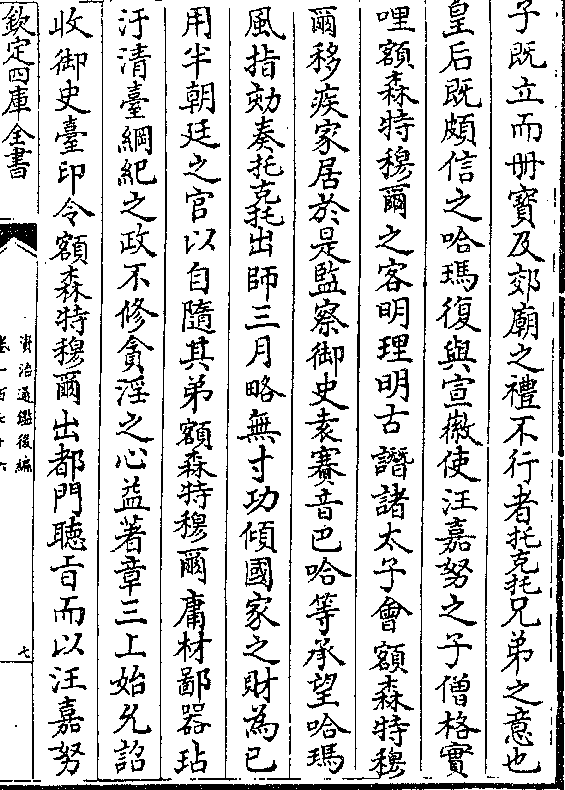 子既立而冊寳及郊廟之禮不行者托克托兄弟之意也
皇后既頗信之哈瑪復與宣徽使汪嘉努之子僧格實
哩額森特穆爾之客明理明古譖諸太子會額森特穆
爾移疾家居於是監察御史袁賽音巴哈等承望哈瑪
風指劾奏托克托出師三月略無寸功傾國家之財為已
用半朝廷之官以自隨其弟額森特穆爾庸材鄙器玷
汙清臺綱紀之政不修貪淫之心益著章三上始允詔
收御史臺印令額森特穆爾出都門聽㫖而以汪嘉努
欽定四庫全書
資治通鑑後編
卷一百七十六
七